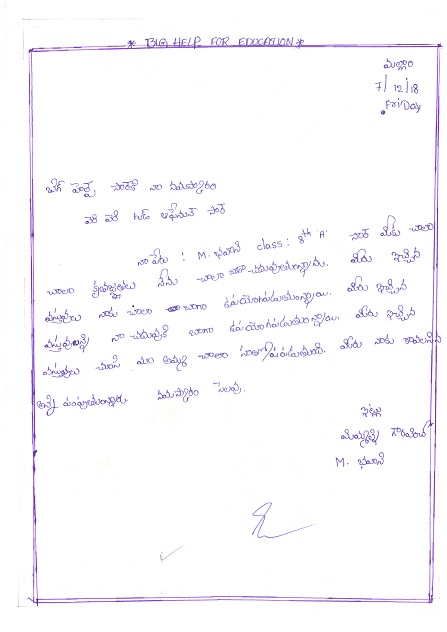 * BIG HELP FOR EDUCATION *
మల్లాం
7/12/18
FriDay
బిగ్ హెల్ప్ సార్‌కి నా నమస్కారం
వెరి వెరి గుడ్ ఆఫ్టర్‌నున్ సార్
నా పేరు : M. భవాని class : 8th A. సార్ మీకు చాలా
చాలా కృతజ్ఞతలు నేను చాలా బాగా చదువుతున్నాను. మీరు ఇచ్చిన
వస్తువులు నాకు చాలా బాగా ఉపయోగపడుతున్నాయి. మీరు ఇచ్చిన
వస్తువులన్ని నా చదువుకి బాగా ఉపయోగపడుతున్నాయి. మీరు ఇచ్చిన
వస్తువులు చూసి మా అమ్మ చాలా సంతోషపడుతుంది. మీరు నాకు కావలసిన
అన్ని పంపుతున్నారు. నమస్కారం సెలవు.
ఇట్లు
మిమ్మల్ని గౌరవించే
M. భవాని